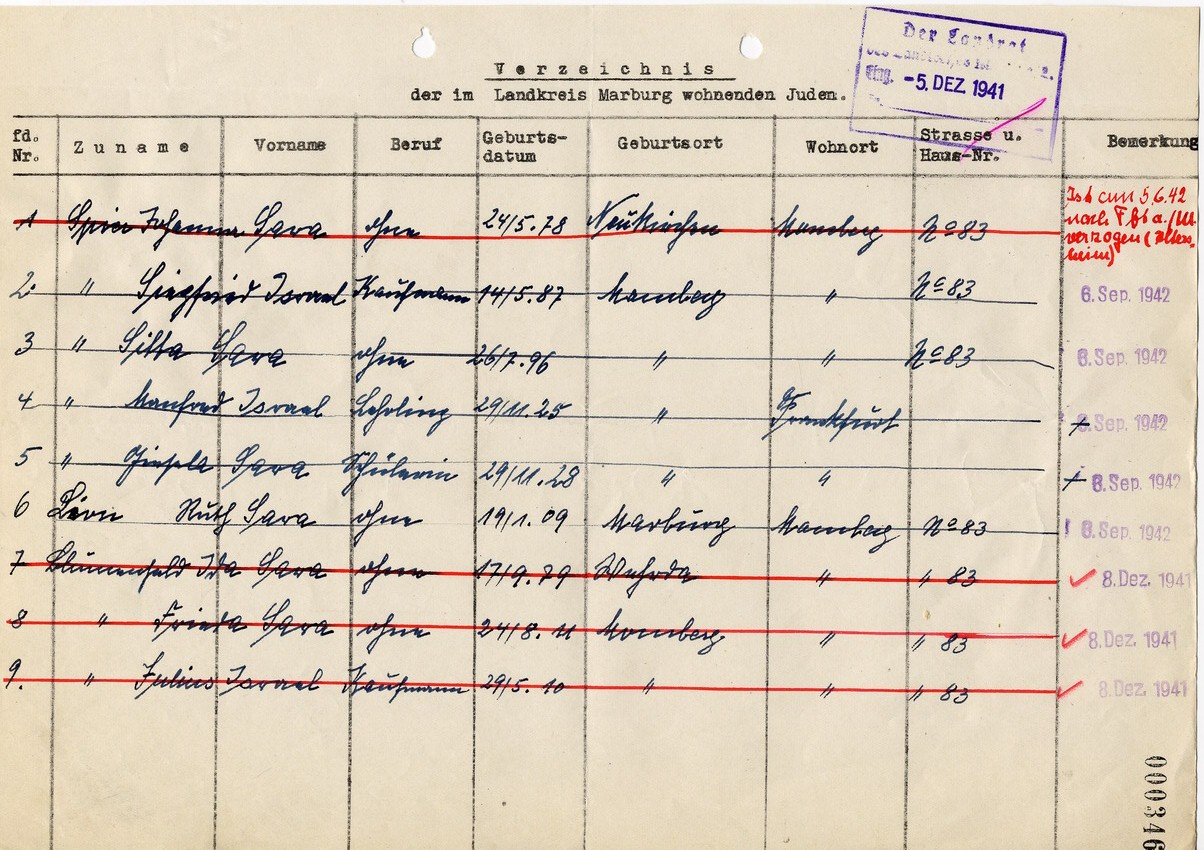 Der Landrat
Eing. -5. DEZ. 1941
Verzeichnis
der im Landkreis Marburg wohnenden Juden.
fd. Nr. Zuname Vorname Beruf Geburts-datum Geburtsort Wohnort Strasse u. Haus-Nr. Bemerkung
1 Spier Johanna Sara ohne 24/5.78 Neukirchen Momberg No 83 Ist am 5.6.42
nach Ffb a./M
verzogen (Alters-
heim)
2. " Siegfried Israel Kaufmann 14/5.87 Momberg " No 83 8. Sep. 1942
3 " Sara ohne 26/7.96 " " No 83 8. Sep. 1942
4 " Manfred Israel Lehrling 29/11.25 " Frankfurt + 8. Sep. 1942
5 " Gisela Sara Schülerin 29/11.28 " " + 8. Sep. 1942
6 Ruth Sara ohne 19/1.09 Marburg Momberg No 83 8. Sep. 1942
7 Blumenfeld Ida Sara ohne 17/9.79 Wehrda " " 83 8. Dez. 1941
8 " Frieda Sara ohne 24/8.11 Momberg " " 83 8. Dez. 1941
9. " Julius Israel Kaufmann 29/5.10 " " " 83 8. Dez. 1941
000346